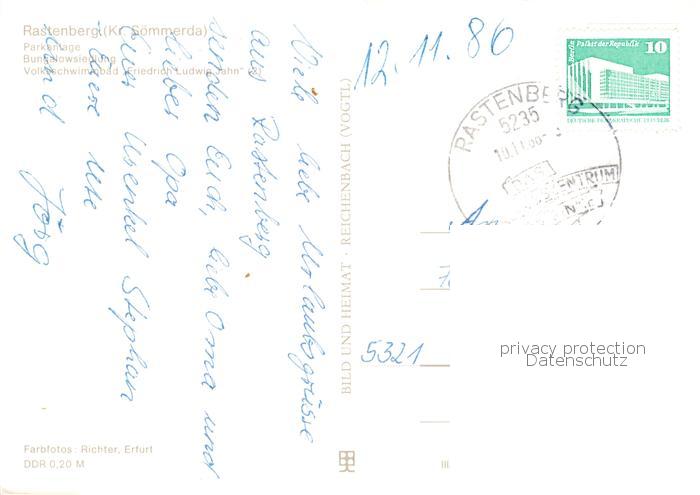 Rastenberg (Kr. Sömmerda)
Parkanlage
Bungalowsiedlung
Volksschwimmbad "Friedrich Ludwig Jahn" (2)
Viele liebe Urlaubsgrüsse
aus Rastenberg
senden Euch, liebe Oma und
lieber Opa
Euer Urenkel Stephan
Eure Ute
und Jörg
Farbfotos: Richter, Erfurt
DDR 0,20 M
BILD UND HEIMAT · REICHENBACH (VOGTL)
12.11.86
Berlin Palast der Republik
10
DEUTSCHE DEMOKRATISCHE REPUBLIK
RASTENBERG
5235
10.11.86
An
5321
III
privacy protection
Datenschutz